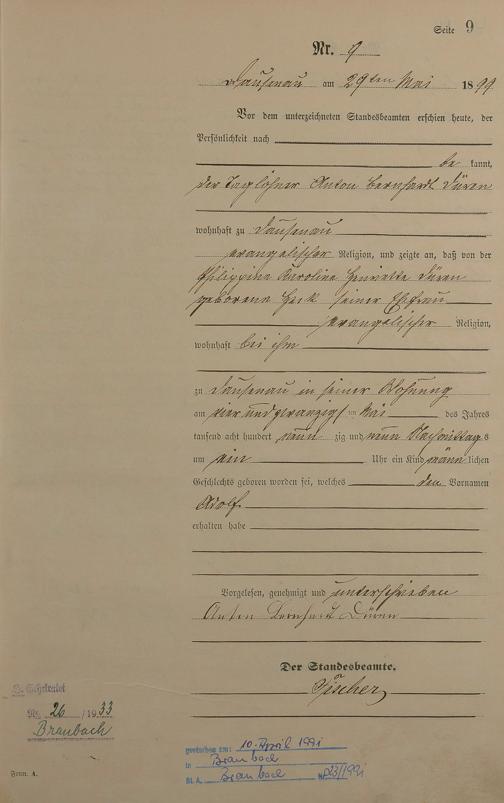 Seite 9
Nr. 9
Dausenau am 29ten Mai 1899
Vor dem unterzeichneten Standesbeamten erschien heute, der
Persönlichkeit nach
be kannt,
der Taglöhner Anton Bernhardt Düren
wohnhaft zu Dausenau
evangelischer Religion, und zeigte an, daß von der
Philippine Karoline Henriette Düren
geborene Heck seiner Ehefrau
evangelischer Religion,
wohnhaft bei ihm
zu Dausenau in seiner Wohnung
am vier und zwanzigsten Mai des Jahres
tausend acht hundert neun zig und neun Nachmittags
um ein Uhr ein Kind männ lichen
Geschlechts geboren worden sei, welches den Vornamen
Adolf
erhalten habe
Vorgelesen, genehmigt und unterschrieben
Anton Bernhart Düren
Der Standesbeamte.
Fischer
Nr. 26 / 1933
Braubach
gestorben am: 10. April 1991
in Braubach
St. A. Braubach Nr. 23/1991
Form. A.